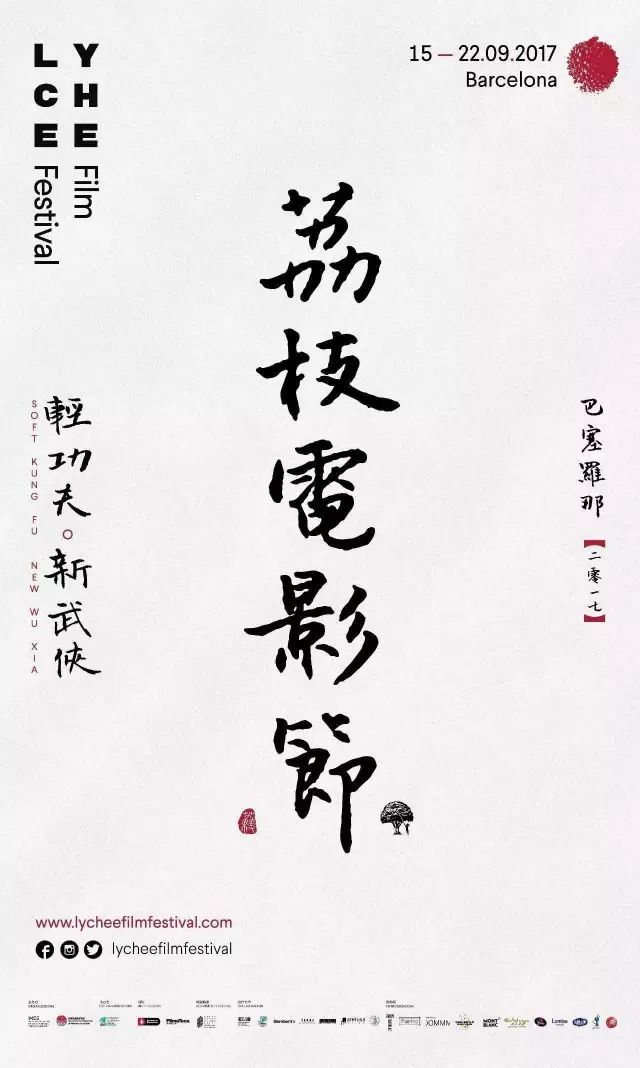 LY
CH
EE
Film
Festival
15 — 22.09.2017
Barcelona
荔枝電影節
輕功夫。新武俠
SOFT KUNG FU NEW WU XIA
巴塞羅那
【二零一七】
www.lycheefilmfestival.com
lycheefilmfestival